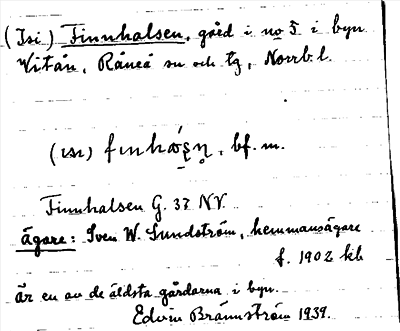 (Isi) Finnhalsen, gård i no 5 i byn
Witån, Råneå sn och tg, Norrb. l.
(ɪsɪ) , bf. m.
Finnhalsen G. 37 NV
ägare: Sven W. Sundström, hemmansägare
f. 1902
är en av de äldsta gårdarna i byn.
Edvin Brännström 1939.